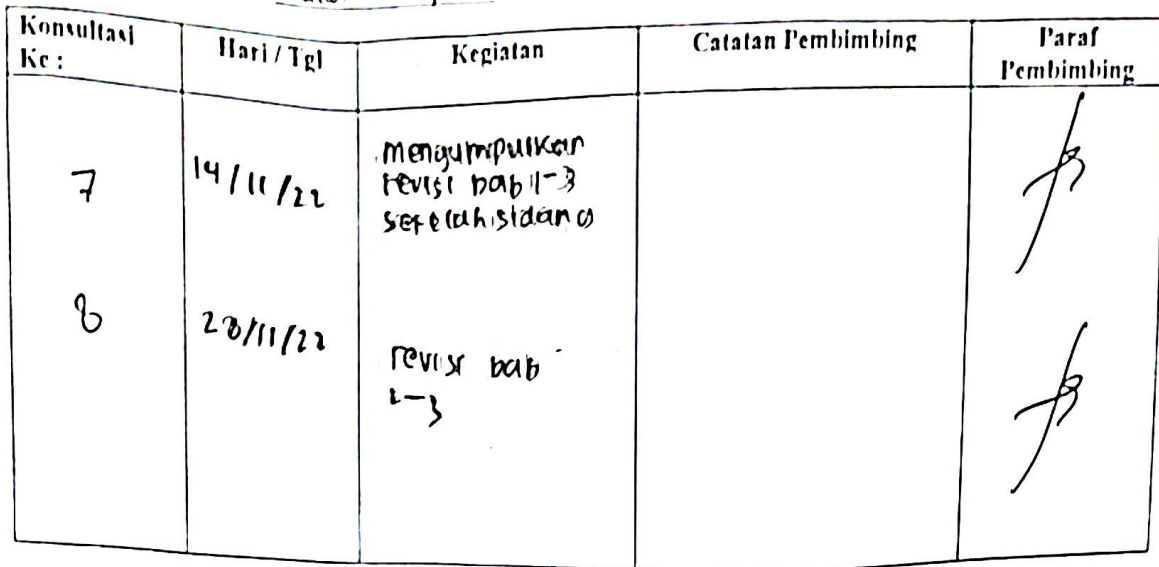 Konsultasi Ke :
Hari / Tgl
Kegiatan
Catatan Pembimbing
Paraf Pembimbing
7
14/11/22
mengumpulkan
revisi bab 1-3
setelah sidang
8
28/11/22
revisi bab
1-3